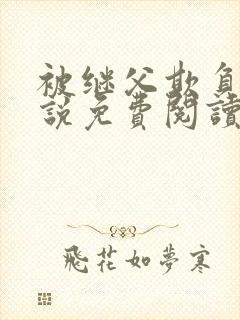 被继父欺负
說免費閱讀
飛花如夢寒